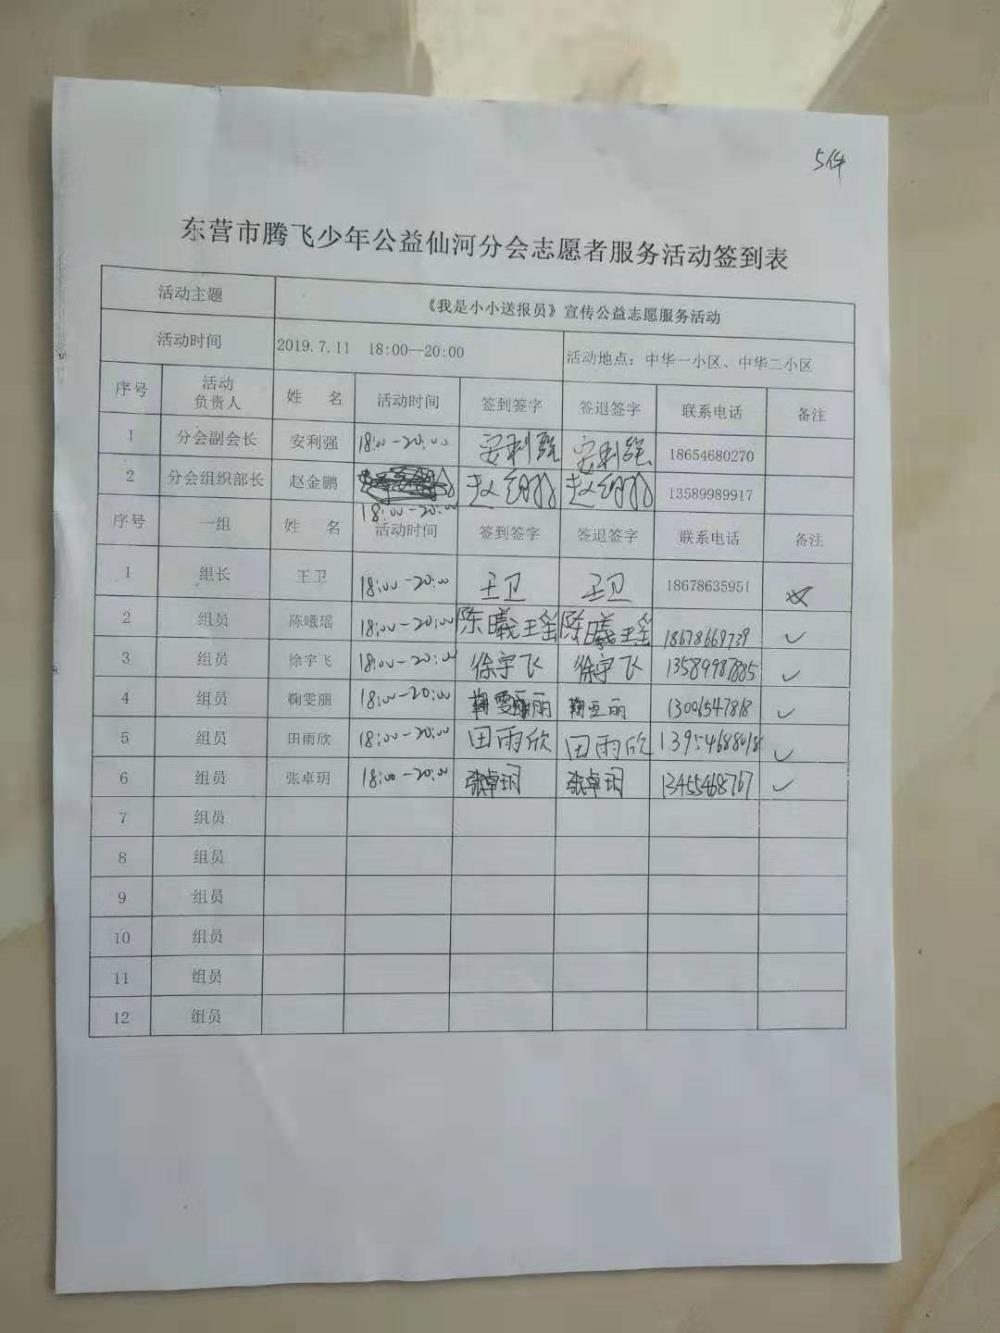 5件
东营市腾飞少年公益仙河分会志愿者服务活动签到表
活动主题 《我是小小送报员》宣传公益志愿服务活动
活动时间 2019.7.11 18:00—20:00 活动地点：中华一小区、中华二小区
序号 活动负责人 姓 名 活动时间 签到签字 签退签字 联系电话 备注
1 分会副会长 安利强 18:00-20:00 安利强 安利强 18654680270
2 分会组织部长 赵金鹏 18:00-20:00 13589989917
序号 一组 姓 名 活动时间 签到签字 签退签字 联系电话 备注
1 组长 王卫 18:00-20:00 王卫 王卫 18678635951
2 组员 陈曦瑶 18:00-20:00 陈曦瑶 陈曦瑶 18678669739 ✓
3 组员 徐宇飞 18:00-20:00 徐宇飞 徐宇飞 13589987885 ✓
4 组员 鞠雯丽 18:00-20:00 鞠雯丽 13006547818 ✓
5 组员 田雨欣 18:00-20:00 田雨欣 田雨欣 13954688018 ✓
6 组员 张卓玥 18:00-20:00 张卓玥 张卓玥 13455468767 ✓
7 组员
8 组员
9 组员
10 组员
11 组员
12 组员